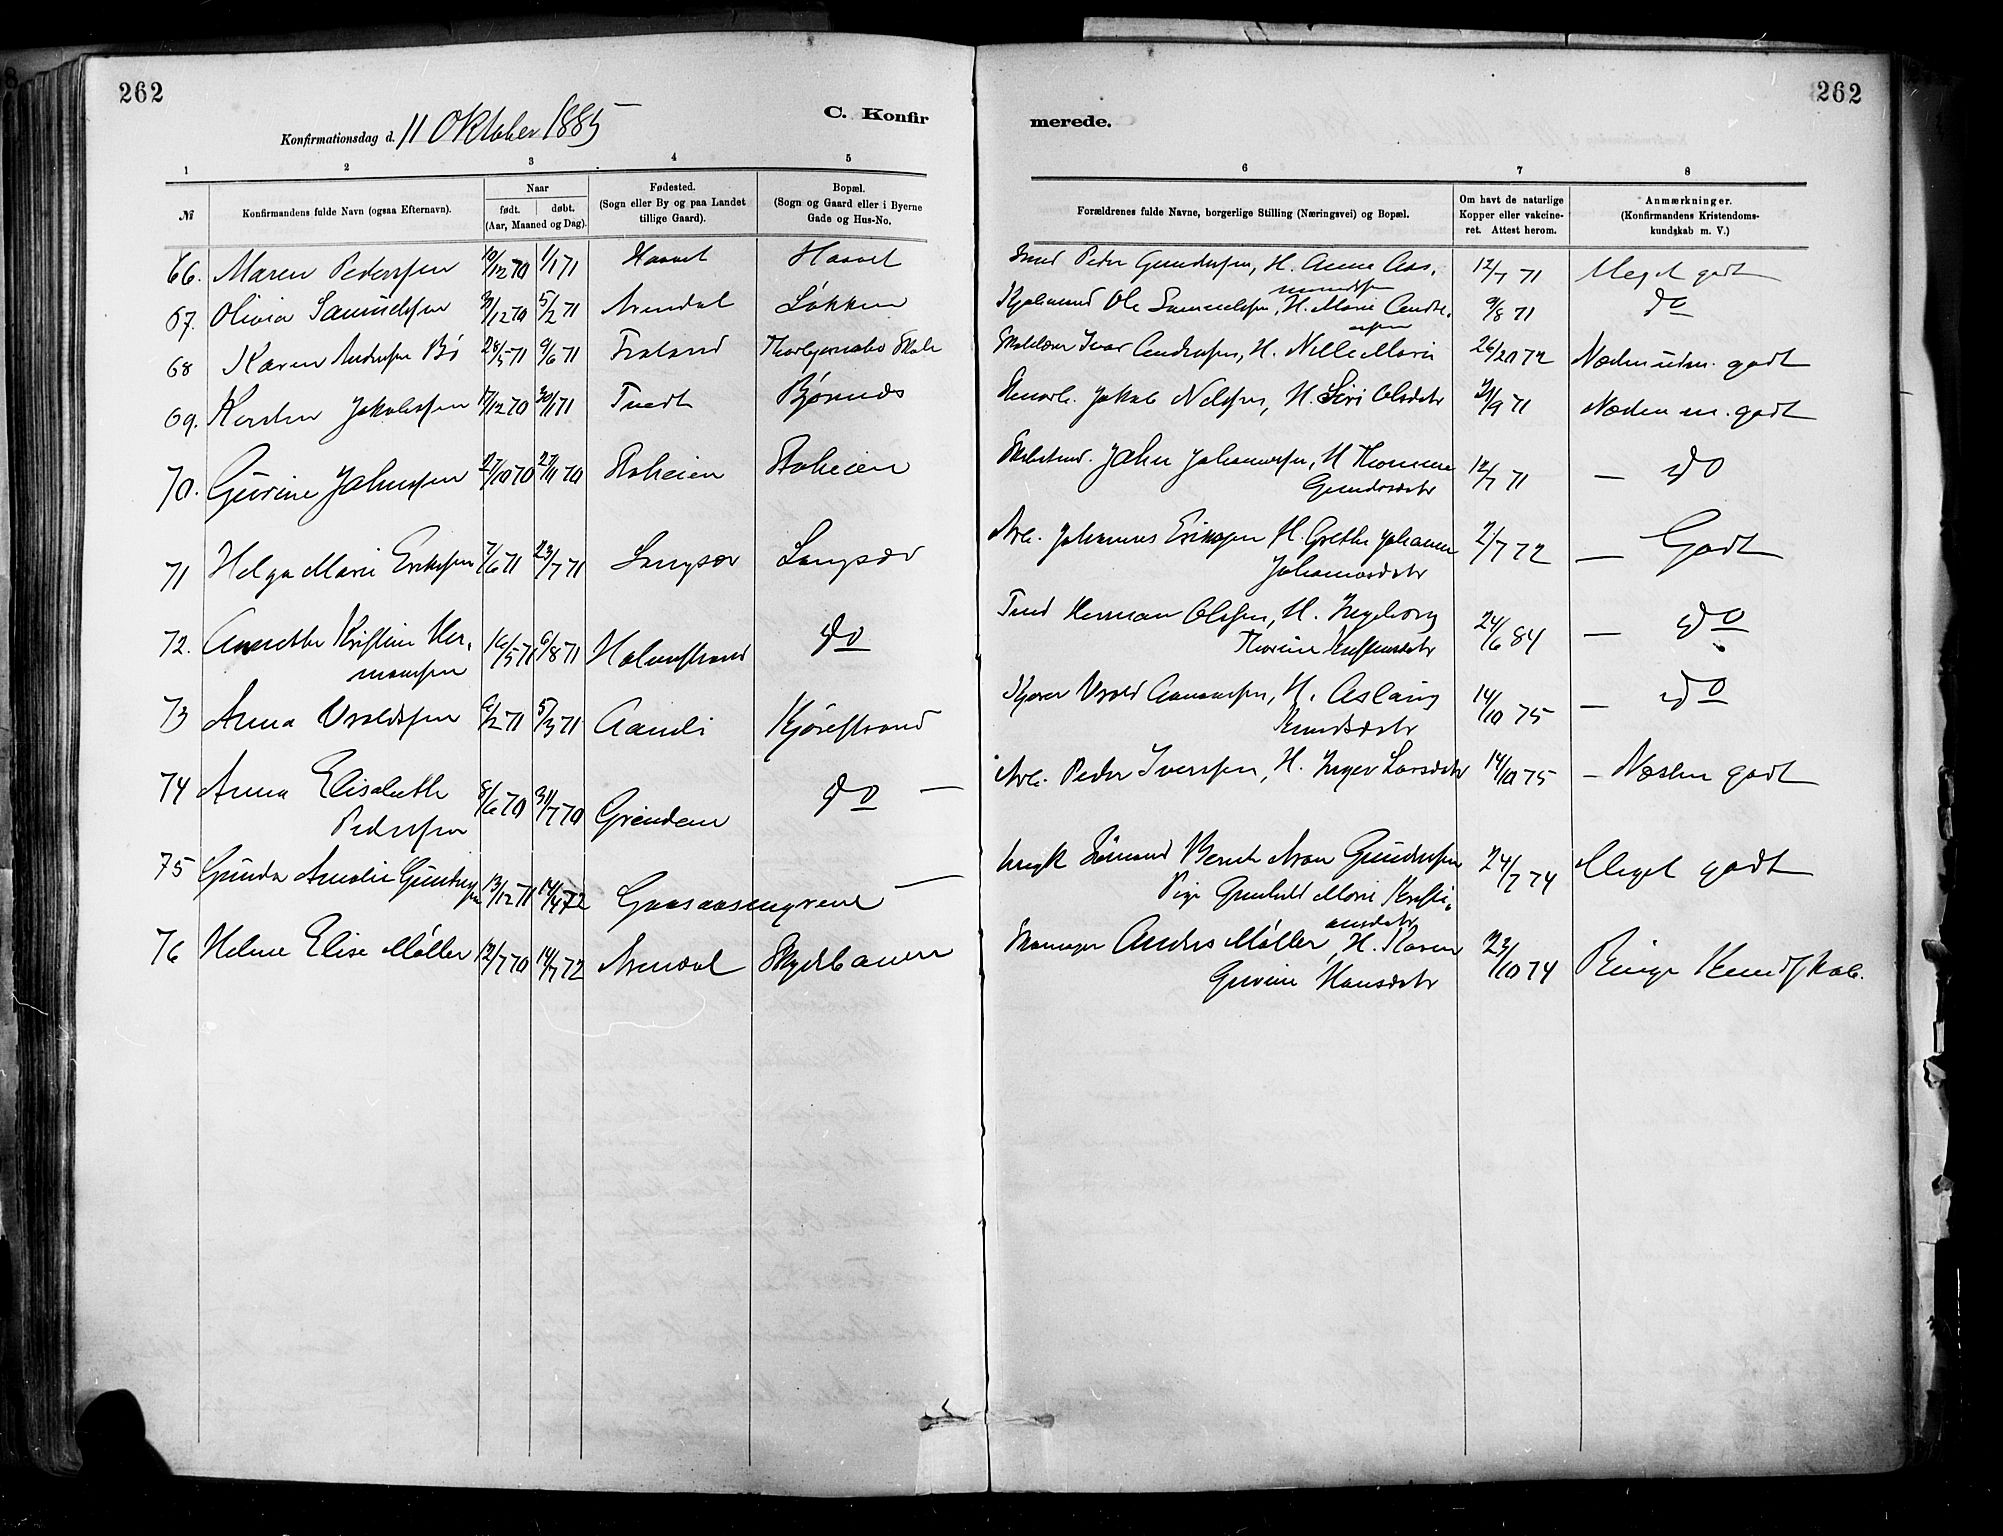 262
262
Konfirmationsdag d. 11 Oktober 1885
C. Konfir
merede.
1 2 3 4 5
6 7 8
№
Konfirmandens fulde Navn (ogsaa Efternavn).
Naar
født. døbt.
(Aar, Maaned og Dag).
Fødested.
(Sogn eller By og paa Landet
tillige Gaard).
Bopæl.
(Sogn og Gaard eller i Byerne
Gade og Hus-No.
Forældrenes fulde Navne, borgerlige Stilling (Næringsvei) og Bopæl.
Om havt de naturlige
Kopper eller vakcine-
ret. Attest herom.
Anmærkninger.
(Konfirmandens Kristendoms-
kundskab m. V.)
66. Maren Pederssen 10/12 70 1/1 71 Haavet Haavet Peder Gunderssen, H. Anne Aas.
mundssen 12/7 71 Meget godt
67. Olivia Samuelssen 31/12 70 5/2 71 Arendal Løkken Ole Samuelssen, H. Marie Andre.
assen 9/8 71 do
68 Karen Anderssen Bø 28/5 71 9/6 71 Froland Thorbjørnsbo Skole Skolelærer Ivar Anderssen, H. Nille Marie 26/20 72 godt
69. Kirsten Jakobssen 17/12 70 30/1 71 Tvedt Bjørnnes Jakob Nilssen, H. Siri Olsdatr 21/9 71 Næsten m. godt
70. Gurine Johnssen 27/10 70 27/11 70 Stoheien Stoheien John Johannessen, H Thomine
Gundersdatr 12/7 71 — do
71 Helga Marie Erikssen 7/6 71 23/7 71 Langsæ Langsæ Arb. Johannes Erikssen H. Grethe Johanne
Johannesdatr 2/7 72 — Godt
72. Annette Kristine Her.
manssen 16/5 71 6/8 71 Holmestrand do Herman Olssen, H. Ingeborg
Thorine 24/6 84 — do
73 Anna Uvoldssen 6/2 71 5/3 71 Aamli Kjørestrand Kjører Uvold Aanonssen, H. Aslaug
Knudsdatr 14/10 75 — do
74 Anna Elisabeth
Pederssen 8/6 70 31/7 70 Grendene do — Arb. Peder Iverssen, H. Inger Larsdatr 14/10 75 — Næsten godt
75 Gunda Amalie Gunderssen 13/12 71 14/4 72 Gaasaasengrene — Ungk Sømand Bernt Aron Gunderssen
Pige Gunhild Marie Kristi.
ansdatr 24/7 74 Meget godt
76 Helene Elise Møller 12/7 70 14/7 72 Arendal Skydebanen Skomager Anders Møller, H. Karen
Gurine Hansdatr 23/10 74 Ringe Kundskab.